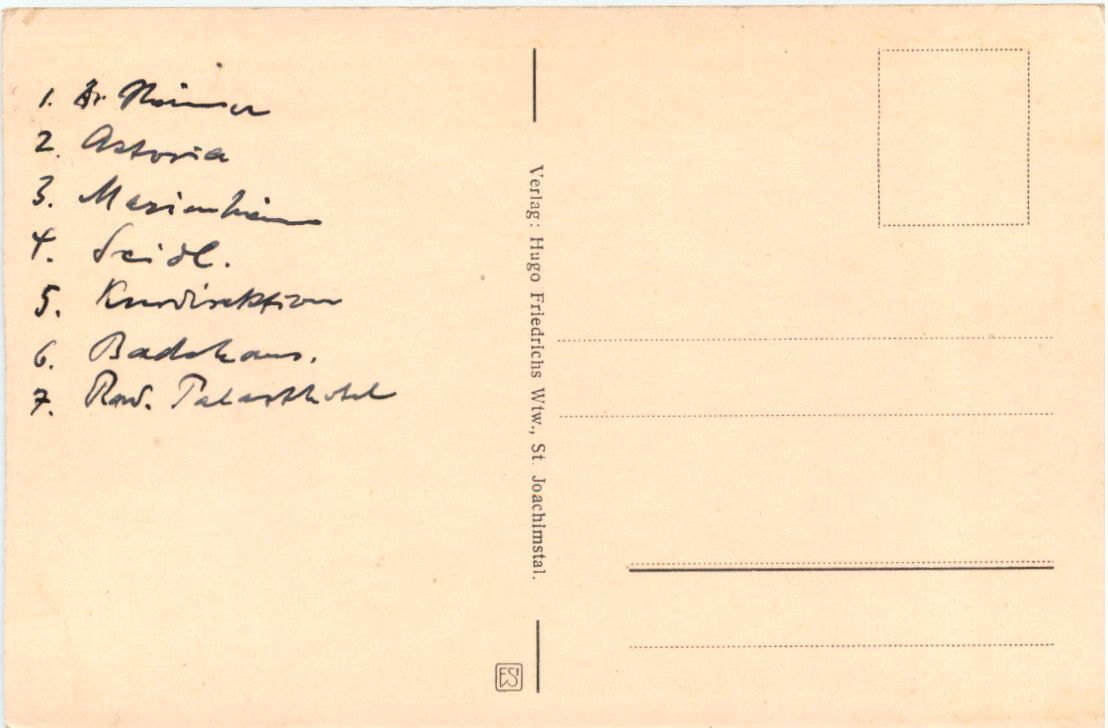 1. Dr.
2. Astoria
3. Marienheim
4. Seidl.
5. Kurdirektion
6. Badehaus.
7. Rad. Palasthotel
Verlag: Hugo Friedrichs Wtw., St. Joachimstal.
ES